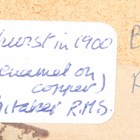 hurst in 1900
enamel on
copper)
hitaker R.M.S.
B
R